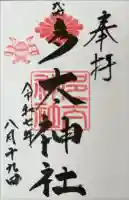 奉拝
多太神社
令和七年
八月十九日